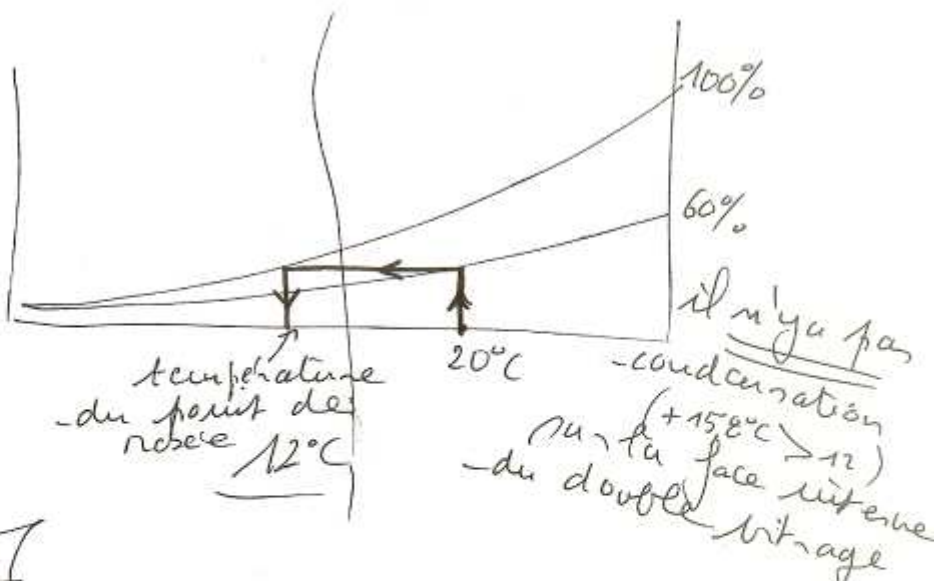 100%
60%
20°C
température
du point de
rosée
12°C
il n'y a pas
condensation
(+ 15,2°C > 12)
sur la face interne
du double vitrage